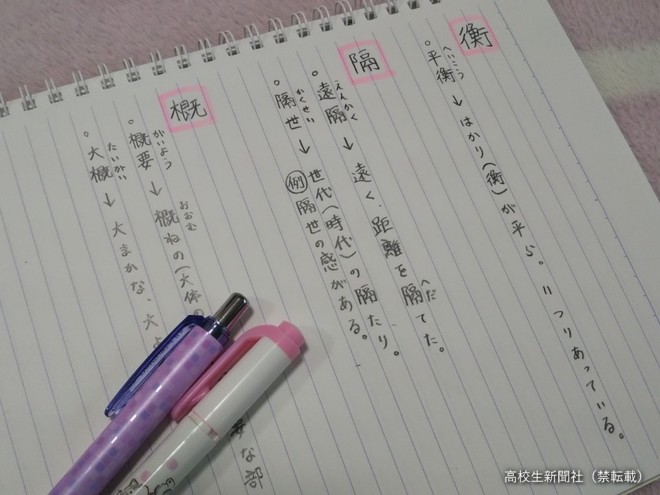 衡
。平衡 → はかり(衡)が平ら。=つりあっている。
へいこう
隔
。遠隔 → 遠く、距離を隔てた。
えんかく
へだ
。隔世 → 世代(時代)の隔たり。
かくせい
例 隔世の感がある。
概
。概要 → 概ねの(大体の
がいよう
おおむ
要な部
。大概 → 大まかな、大
たいがい
高校生新聞社(禁転載)